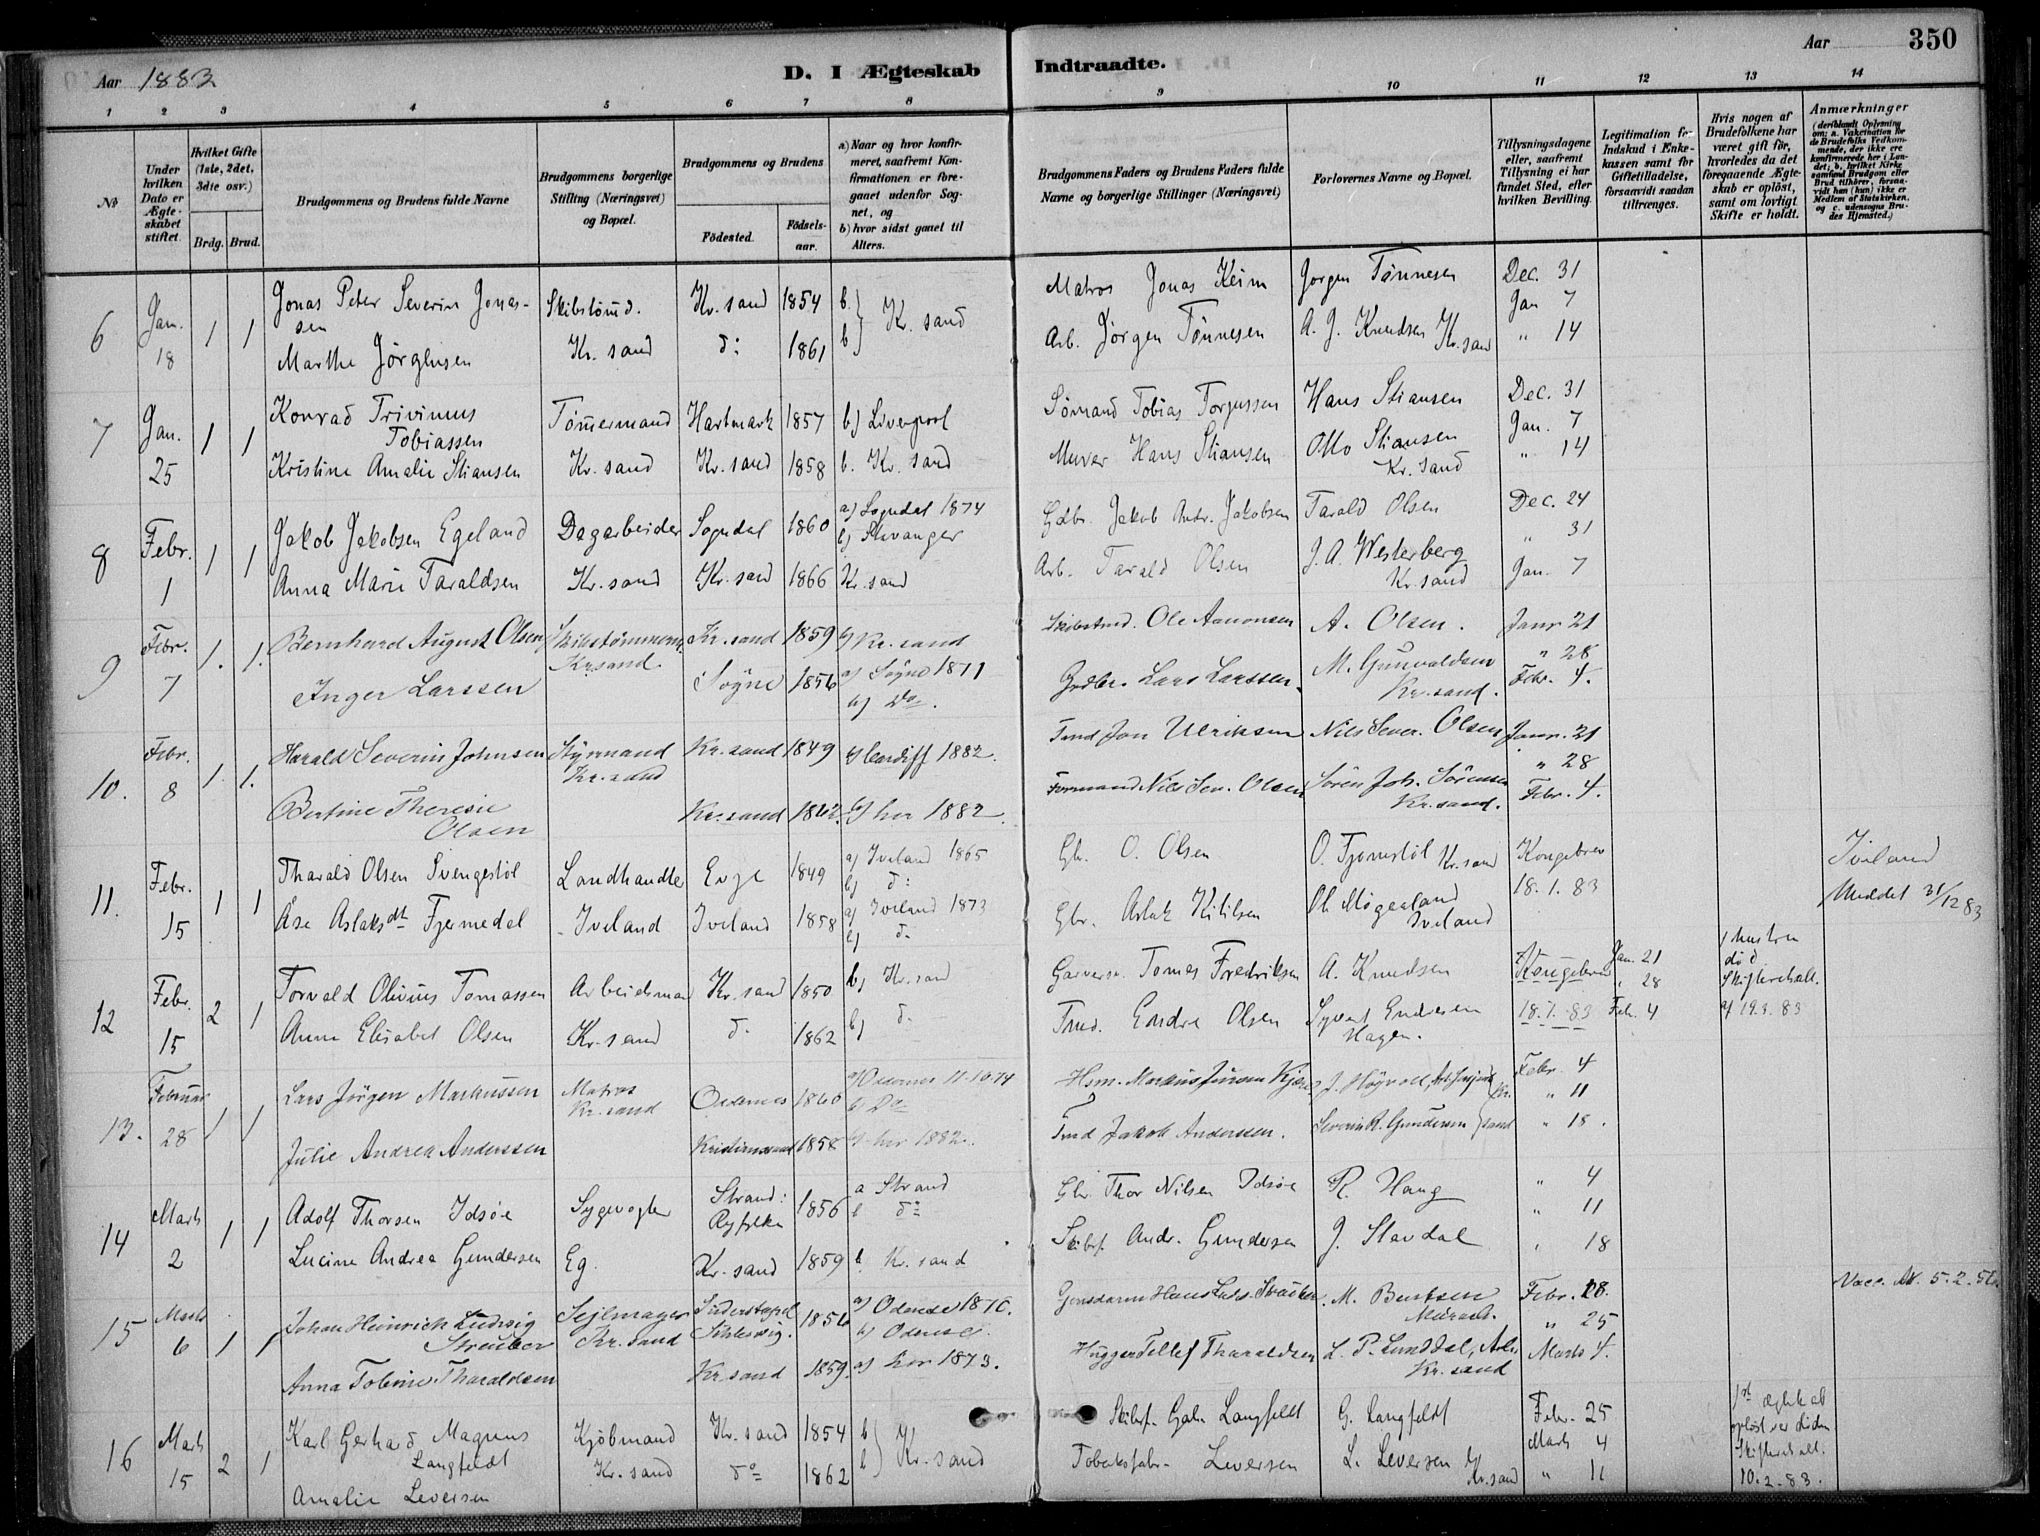 Aar 1883
D. I Ægteskab
Indtraadte.
Aar
350
1 2 3 4 5 6 7 8 9 10 11 12 13 14
No
Under hvilken Dato er Ægteskabet stiftet.
Hvilket Gifte (1ste, 2det, 3die osv.)
Brdg. Brud.
Brudgommens og Brudens fulde Navne
Brudgommens borgerlige Stilling (Næringsvei) og Bopæl.
Brudgommens og Brudens
Fødested.
Fødselsaar.
a) Naar og hvor konfirmeret, saafremt Konfirmationen er foregaaet udenfor Sognet, og
b) hvor sidst gaaet til Alters.
Brudgommens Faders og Brudens Faders fulde Navne og borgerlige Stillinger (Næringsvei)
Forlovernes Navne og Bopæl.
Tillysningsdagene eller, saafremt Tillysning ei har fundet Sted, efter hvilken Bevilling.
Legitimation for Indskud i Enkekassen samt for Giftetilladelse, forsaavidt saadan tiltrænges.
Hvis nogen af Brudefolkene har været gift før, hvorledes da det foregaaende Ægteskab er opløst, samt om lovligt Skifte er holdt.
Anmærkninger
(deriblandt Oplysning om: a. Vakcination for de Brudefolks Vedkommende, der ikke ere konfirmerede her i Landet; b. hvilket Kirkesamfund Brudgom eller Brud tilhører, forsaavidt han (hun) ikke er Medlem af Statskirken, og c. udensogns Brudes Hjemsted.)
6 Jan. 18 1 1
Jonas Peter Severin Jonassen Skibstømd. Kr. sand 1854 b.
Marthe Jörgensen Kr. sand do 1861 b) Kr. sand
Matros Jonas Keim Jørgen Tønnesen Dec. 31
Arb. Jörgen Tönnesen A. J. Knudsen Kr. sand Jan 7 " 14
7 Jan. 25 1 1
Konrad Trivinius Tobiassen Tömmermand Hartmark 1857 b) Liverpool
Kristine Amalie Stiansen Kr. sand Kr. sand 1858 b. Kr. sand
Sömand Tobias Torjussen Hans Stiansen Dec. 31
Murer Hans Stiansen Otto Stiansen Kr. sand Jan. 7 " 14
8 Febr. 1 1 1
Jakob Jakobsen Egeland Dagarbeider Sogndal 1860 a) Sogndal 1874 b) Stavanger
Anna Marie Taraldsen Kr. sand Kr. sand 1866 Kr. sand
Gdbr. Jakob Andr. Jakobsen Tarald Olsen Dec. 24
Arb. Tarald Olsen J. A. Westerberg Kr. sand " 31 Jan. 7
9 Febr. 7 1. 1.
Bernhard August Olsen Skibstømmerm. Kr. sand Kr. sand 1859 b) Kr. sand
Inger Larssen Søgne 1856 a) Søgne 1871 b) Do.
Ole Aanonsen A. Olsen. Janr 21
Grdbr. Lars Larssen. M. Gunvaldsen Kr. sand. " 28 Febr. 4.
10. Febr. 8 1. 1.
Harald Severin Johnsen Styrmand Kr. sand Kr. sand 1849 b) Cardiff 1882.
Bertine Theresie Olsen Kr. sand 1862. b) her 1882.
Tmd Jon Ulriksen Nils Sever. Olsen Janr. 21
Formand Nils Sev. Olsen Sören Joh. Sörensen Kr. sand. " 28 Febr. 4.
11. Febr. 15 1 1
Tharald Olsen Svengestöl Landhandler Evje 1849 a) Iveland 1865 b) do
Åse Aslaksdt Fjermedal Iveland Iveland 1858 a) Iveland 1873 b) do
Gbr. O. Olsen O. Fjermestöl Kr. sand Kongebrev
Gbr. Aslak Kittilsen Ol. Mögeland Iveland 18. 1. 83
Iveland
Meddelt 31/12 83
12 Febr. 15 2 1
Torvald Olivius Tomassen Arbeidsmand Kr. sand 1850 b) Kr. sand
Anne Elisabet Olsen Kr. sand do 1862 b) do
Garversv. Tomas Fredriksen A. Knudsen Kongebrev Jan. 21
Tmd. Endre Olsen Syvert Endresen Hagen. 18. 1. 83 " 28 Feb. 4
1 hustru död Skifterehatt. af 19.3.83
13. Februar 28 1 1
Lars Jörgen Markussen Matros Kr. sand Oddernes 1860 a) Oddernes 11-10-74 b) Do
Julie Andrea Anderssen Kristianssand 1858 b) her 1882.
Hsm. Markus Jensen J. Högvoll, Febr. 4 " 11
Tmd Jakob Anderssen. Severin A. Gundersen Kr. sand " 18.
14 Marts 2 1 1
Adolf Thorsen Idsöe Sygevogter Strand: Ryfylke 1856 a Strand b do
Lucine Andrea Gundersen Eg. Kr. sand 1859 b. Kr. sand
Gbr. Thor Nilsen Idsöe R. Haug " 4 " 11
Skibsf. Andr. Gundersen J. Stavdal " 18
15 Marts 6 1 1
Johan Heinrich Ludwig Streuber Sejlmager Kr. sand Süderstapel Schleswig. 1856 a) Odense 1870. b) Odense.
Anna Tobine Tharaldsen Kr. sand 1859. a) her 1873.
Gensdarm Hans Ludv. Streuber. M. Berthsen Murerm. Febr. 18. " 25
Hugger Tellef Tharaldsen L. P. Lunddal, Arb. Kr. sand Marts 4.
Vacc. Att. 5. 2. 56
16 Marts 15 2 1
Karl Gerhard Magnus Langfeldt Kjöbmand Kr. sand Kr. sand 1854 b
Amalie Leversen do 1862 b) Kr. sand
Skibsf. Gab. Langfeldt G. Langfeldt Febr. 25
Tobaksfabr. Leversen L. Leversen Kr. sand Marts 4 " 11
1st ægteskab oplöst ved döden Skifterehatt. 10.2.83.